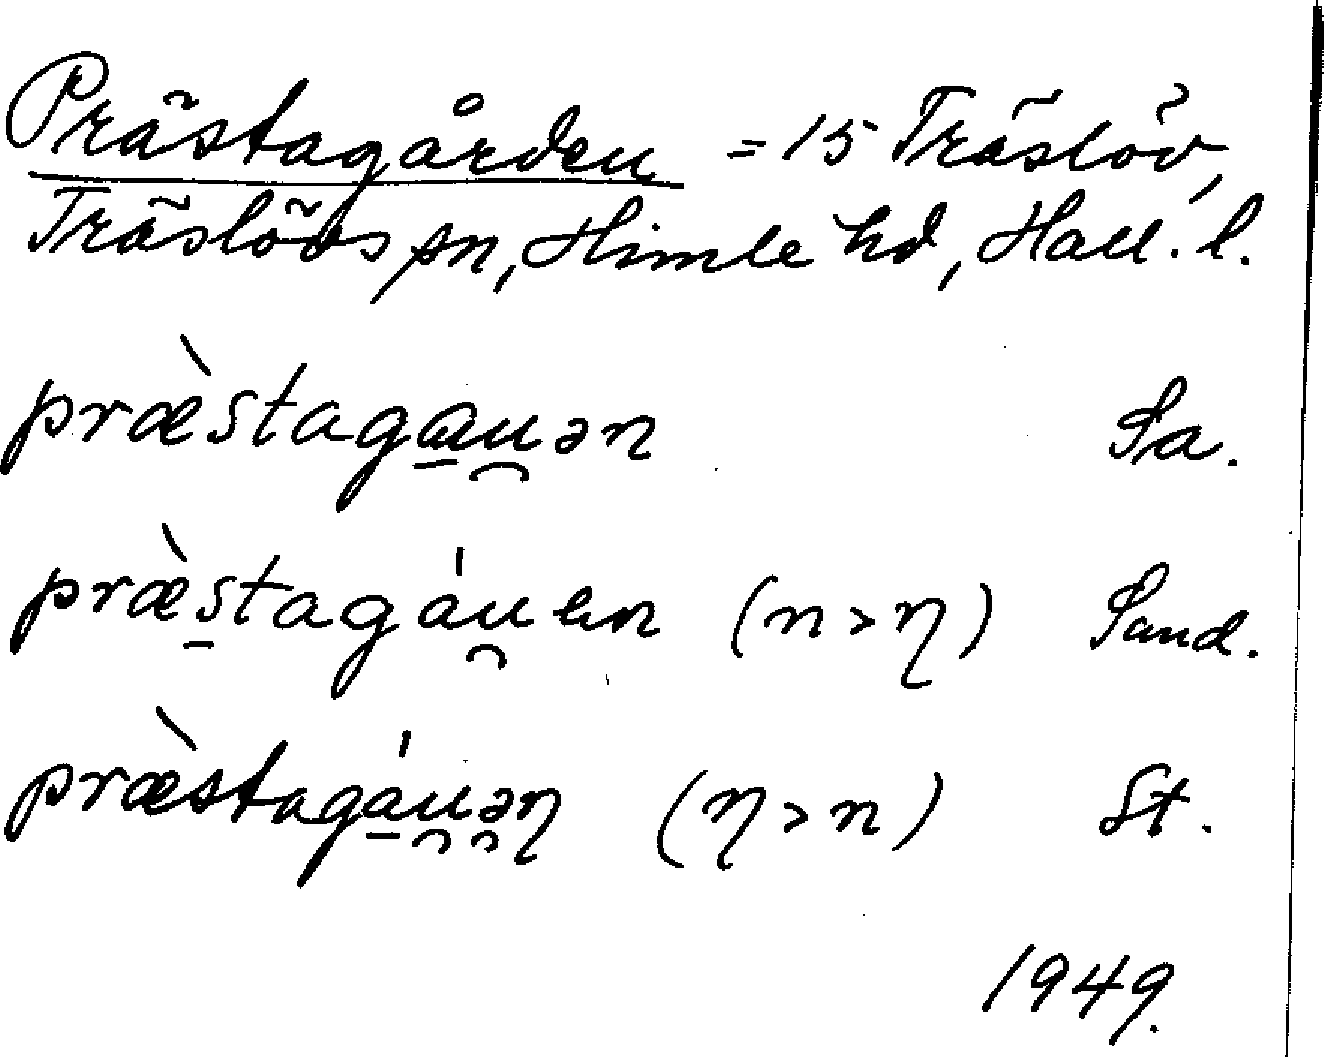 Prästagården = 15 Träslöv,
Träslövs sn, Himle hd, Hall. l.
præ̀staga̱u̯ən Sa.
præ̀s̱tagáu̯en (n > ŋ) Sand.
præ̀stagá̱u̯ə̯ŋ (ŋ > n) St.
1949.